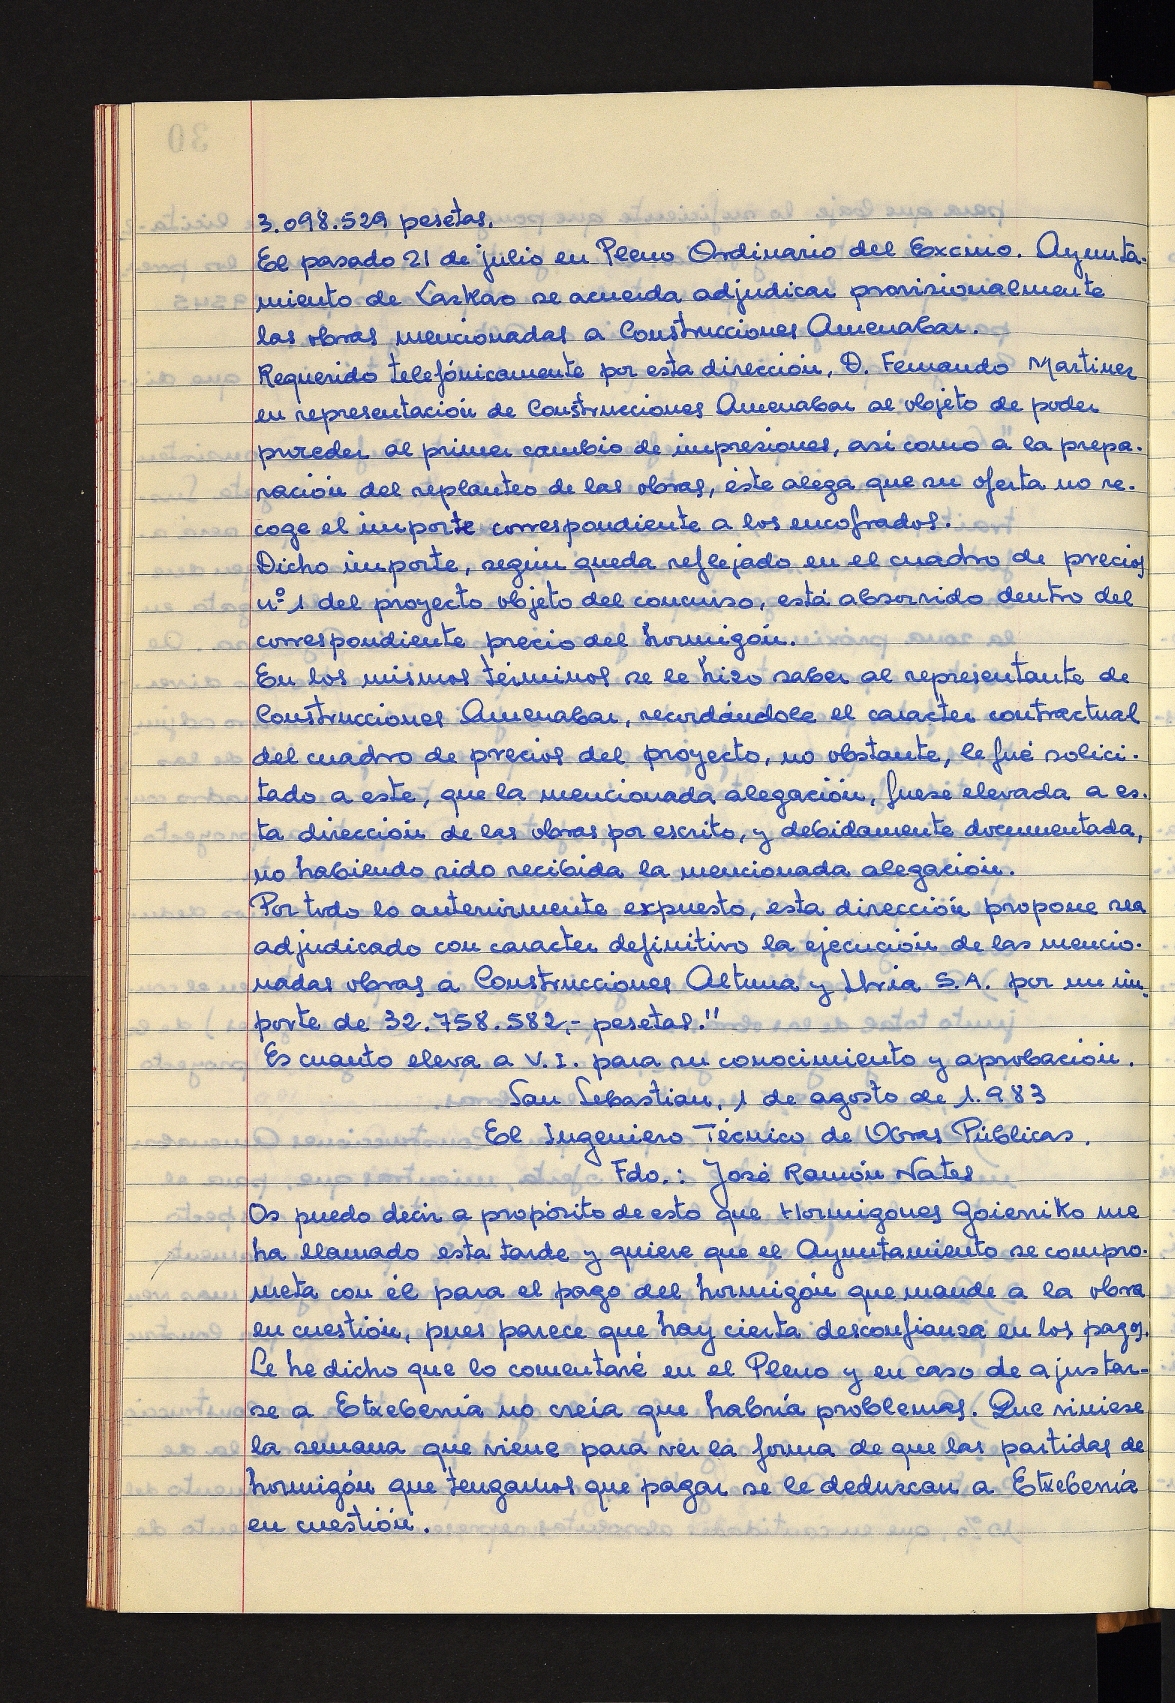 3.098.529 pesetas.
El pasado 21 de julio en Pleno Ordinario del Excmo. Ayunta-
miento de Lazkao se acuerda adjudicar provisionalmente
las obras mencionadas a Construcciones Amenabar.
Requerido telefónicamente por esta dirección, D. Fernando Martinez
en representación de Construcciones Amenabar al objeto de poder
proceder al primer cambio de impresiones, así como a la prepa-
ración del replanteo de las obras, éste alega que su oferta no re-
coge el importe correspondiente a los encofrados.
Dicho importe, según queda reflejado en el cuadro de precios
nº 1 del proyecto objeto del concurso, está absorvido dentro del
correspondiente precio del hormigón.
En los mismos términos se le hizo saber al representante de
Construcciones Amenabar, recordándole el caracter contractual
del cuadro de precios del proyecto, no obstante, le fué solici-
tado a este, que la mencionada alegación, fuese elevada a es-
ta dirección de las obras por escrito, y debidamente documentada,
no habiendo sido recibida la mencionada alegación.
Por todo lo anteriormente expuesto, esta dirección propone sea
adjudicado con caracter definitivo la ejecución de las mencio-
nadas obras a Construcciones Altuna y Uria S.A. por un im-
porte de 32.758.582,- pesetas."
Es cuanto eleva a V.I. para su conocimiento y aprobación.
San Sebastian, 1 de agosto de 1.983
El Ingeniero Técnico de Obras Públicas.
Fdo.: José Ramón Nates
Os puedo decir a propósito de esto que Hormigones Goierriko me
ha llamado esta tarde y quiere que el Ayuntamiento se compro-
meta con él para el pago del hormigón que mande a la obra
en cuestión, pues parece que hay cierta desconfianza en los pagos.
Le he dicho que lo comentaré en el Pleno y en caso de ajustar-
se a Etxeberria no creía que habría problemas. Que viniese
la semana que viene para ver la forma de que las partidas de
hormigón que tengamos que pagar se le deduzcan a Etxeberria
en cuestión.